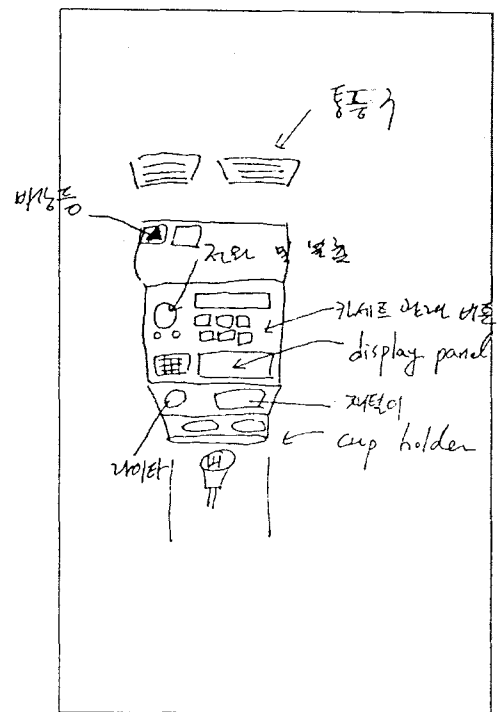 통풍구
비상등
전화 및
카세트 관련 버튼
display panel
재털이
cup holder
라이타